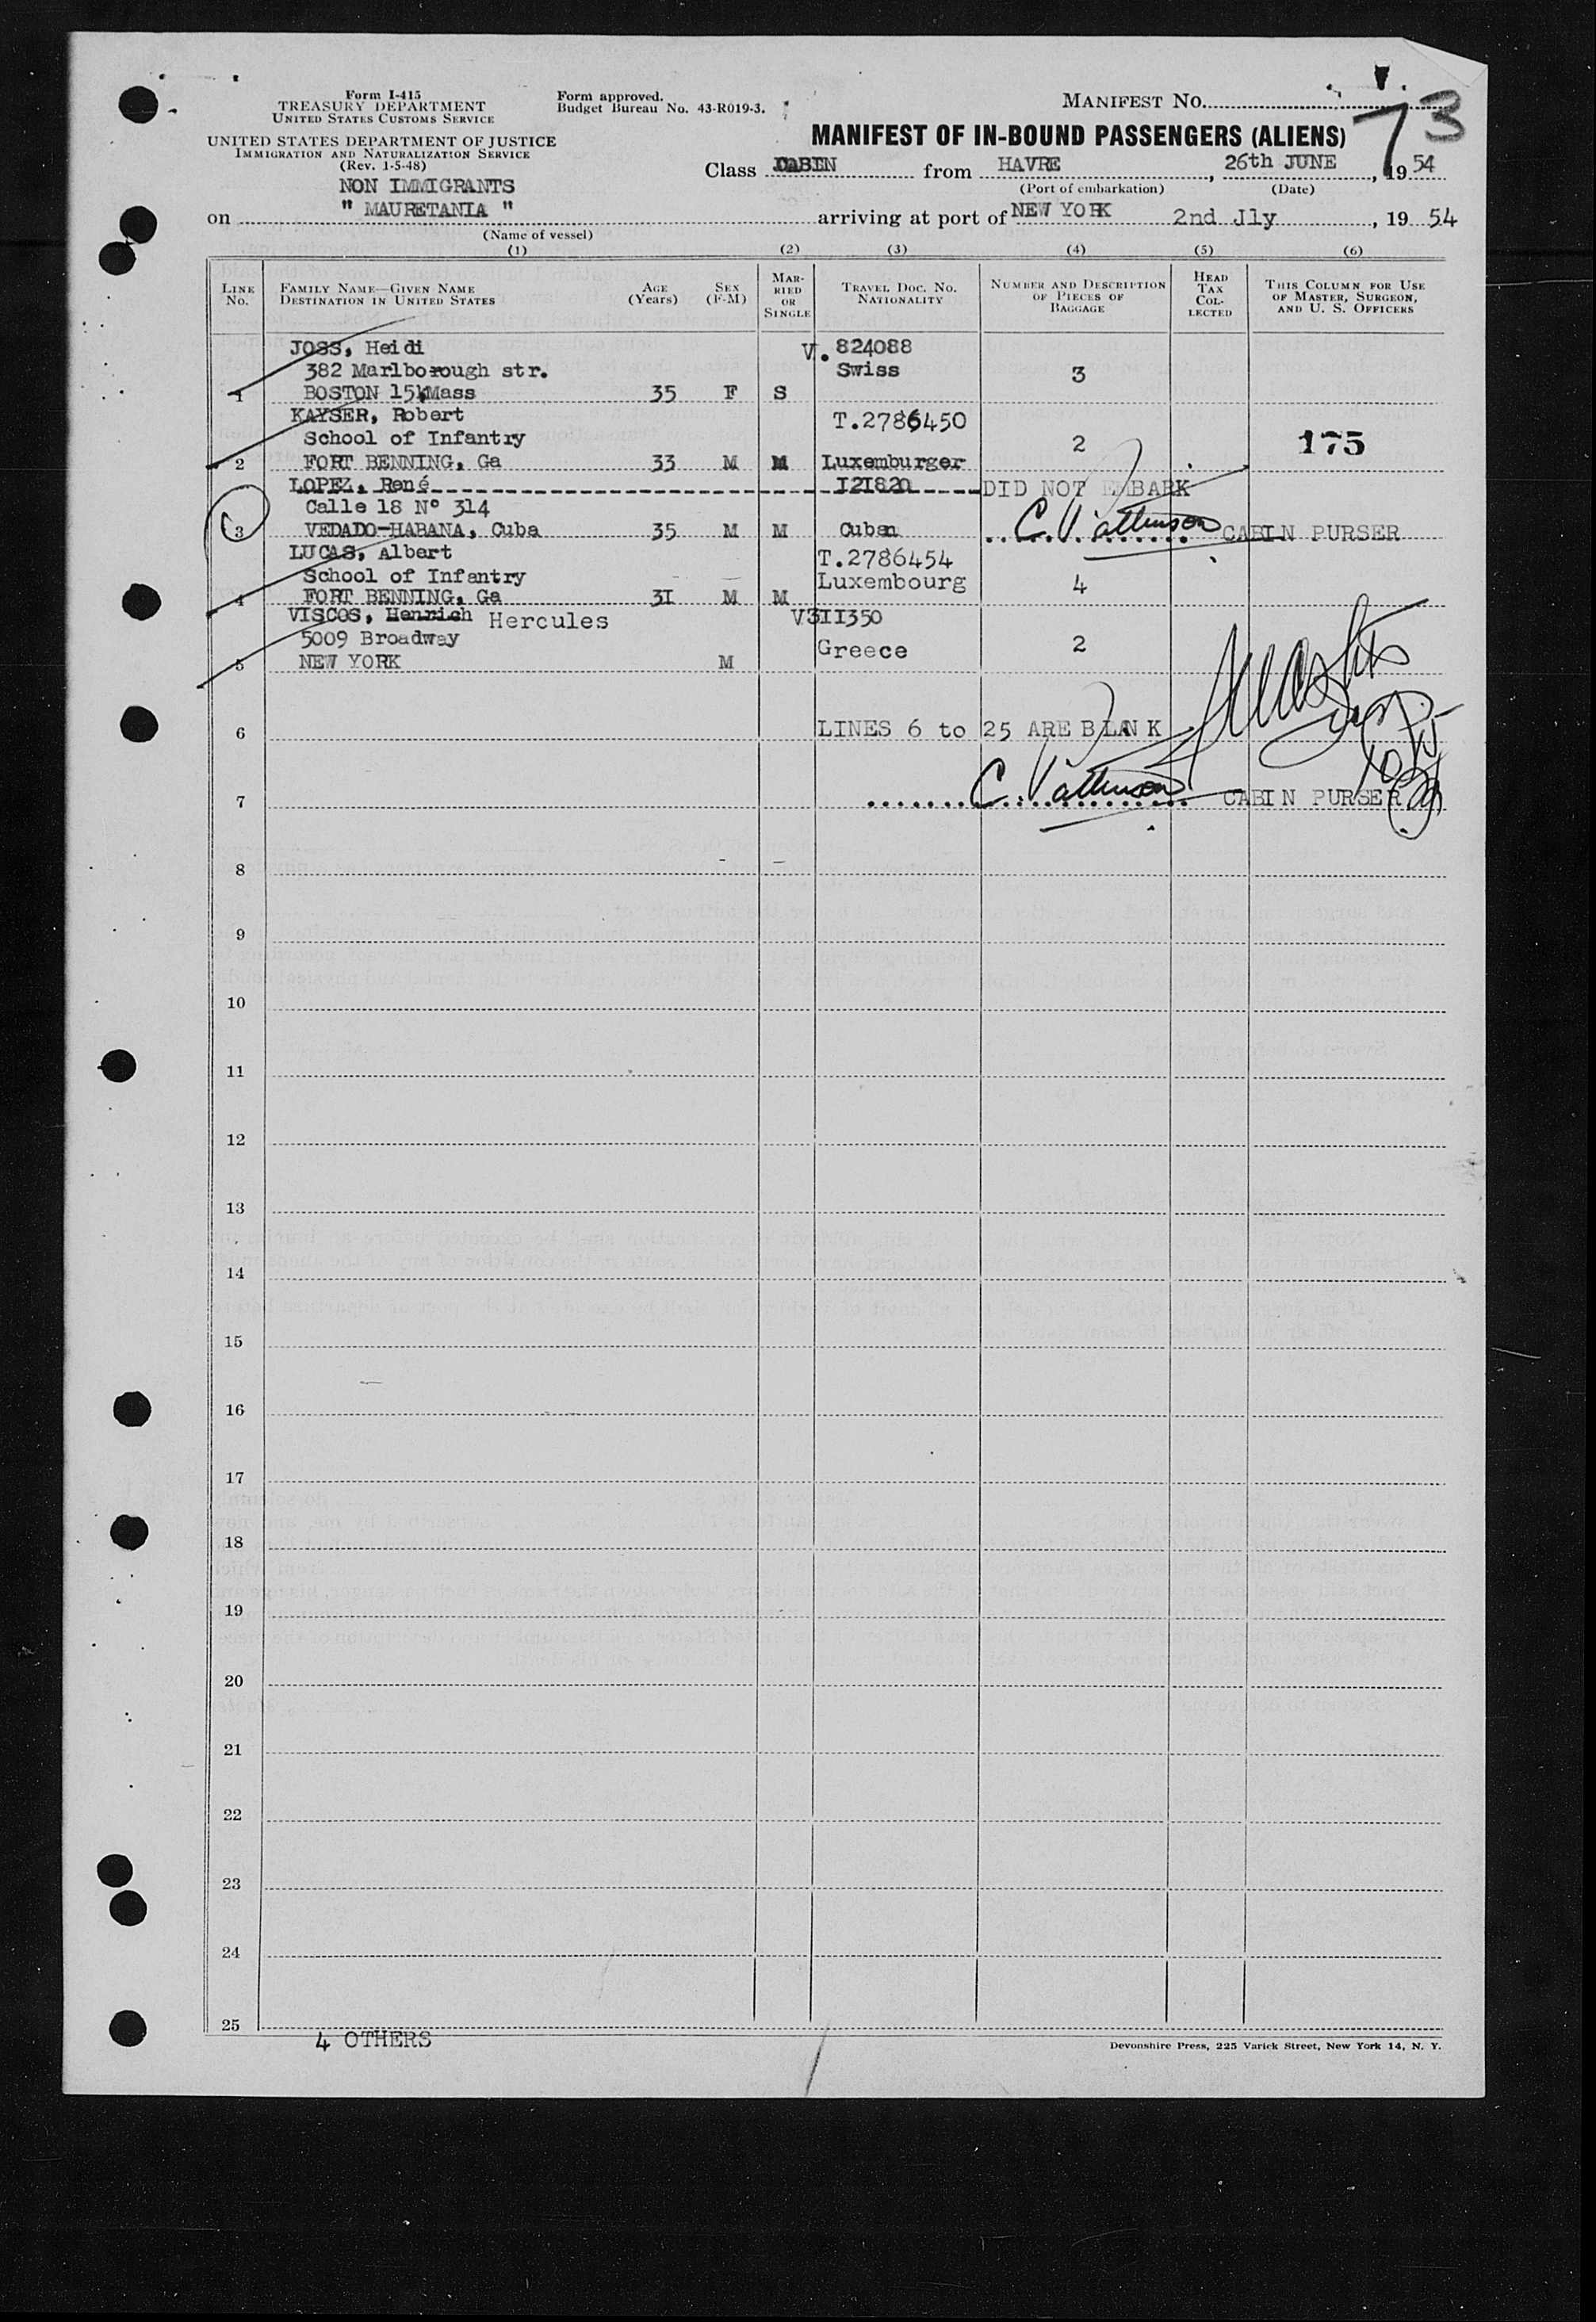 Form I-415
TREASURY DEPARTMENT
UNITED STATES CUSTOMS SERVICE
UNITED STATES DEPARTMENT OF JUSTICE
IMMIGRATION AND NATURALIZATION SERVICE
(Rev. 1-5-48)
Form approved.
Budget Bureau No. 43-R019-3.
MANIFEST NO.
73
MANIFEST OF IN-BOUND PASSENGERS (ALIENS)
NON IMMIGRANTS
Class CABIN from HAVRE, 26th JUNE, 1954
(Port of embarkation) (Date)
on " MAURETANIA " arriving at port of NEW YORK 2nd Jly, 19 54
(Name of vessel)
(1) (2) (3) (4) (5) (6)
LINE NO. FAMILY NAME—GIVEN NAME DESTINATION IN UNITED STATES AGE (Years) SEX (F-M) MARRIED OR SINGLE TRAVEL DOC. NO. NATIONALITY NUMBER AND DESCRIPTION OF PIECES OF BAGGAGE HEAD TAX COLLECTED THIS COLUMN FOR USE OF MASTER, SURGEON, AND U. S. OFFICERS
JOSS, Heidi V. 824088
382 Marlborough str. Swiss 3
1 BOSTON 15 Mass 35 F S
KAYSER, Robert T.2786450
School of Infantry 2 175
2 FORT BENNING, Ga 33 M M Luxemburger
LOPEZ, René I21820 DID NOT EMBARK
Calle 18 N° 314
3 VEDADO-HABANA, Cuba 35 M M Cuban CABIN PURSER
LUCAS, Albert T.2786454
School of Infantry Luxembourg 4
4 FORT BENNING, Ga 3I M M
VISCOS, Henrich Hercules V3II350
5009 Broadway Greece 2
5 NEW YORK M
6 LINES 6 to 25 ARE BLANK
7 CABIN PURSER
8
9
10
11
12
13
14
15
16
17
18
19
20
21
22
23
24
25
4 OTHERS
Devonshire Press, 225 Varick Street, New York 14, N. Y.